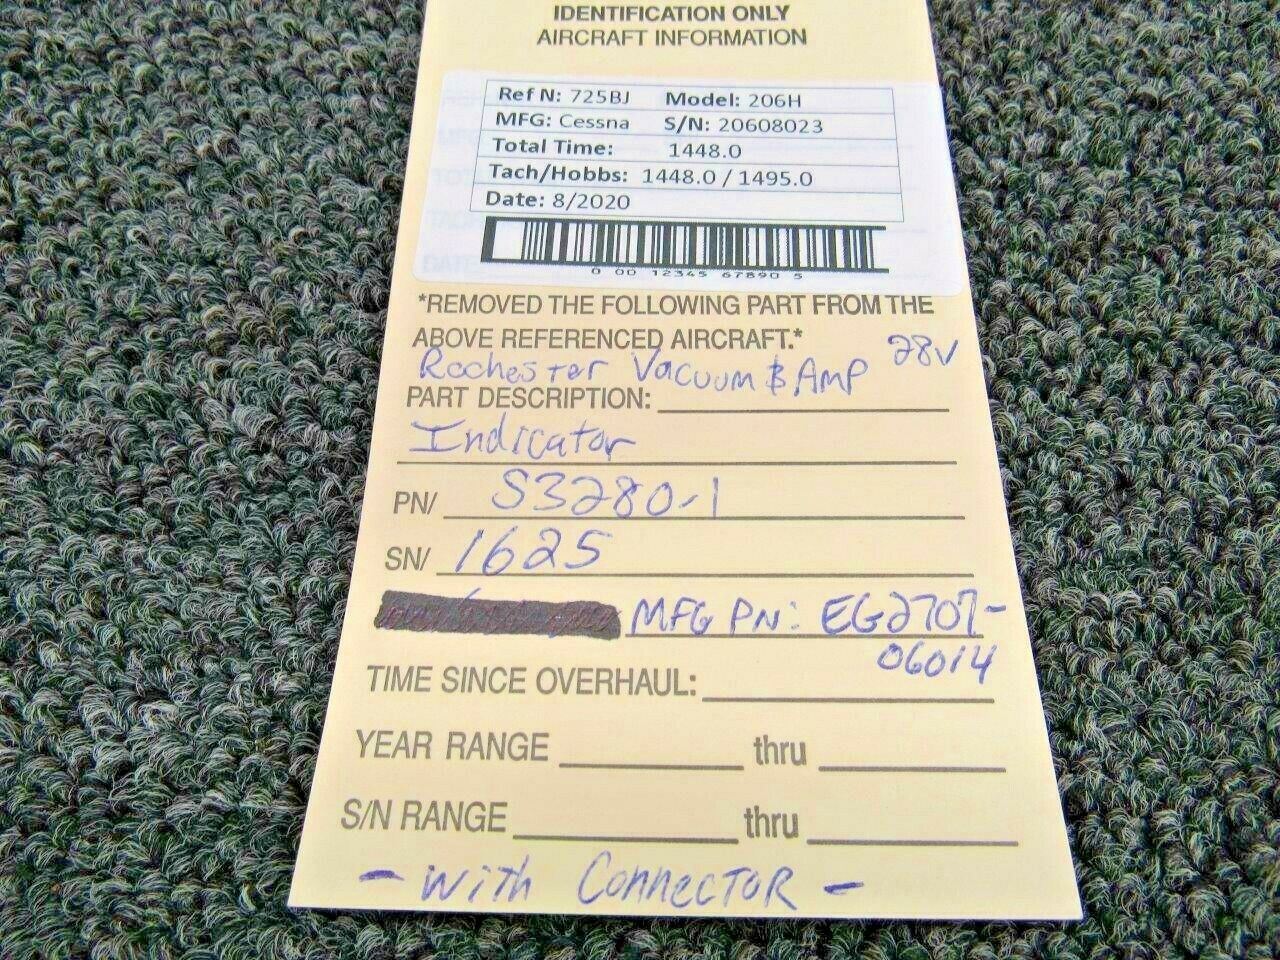 IDENTIFICATION ONLY
AIRCRAFT INFORMATION
Ref N: 725BJ Model: 206H
MFG: Cessna S/N: 20608023
Total Time: 1448.0
Tach/Hobbs: 1448.0 / 1495.0
Date: 8/2020
0 00 12345 67890 5
*REMOVED THE FOLLOWING PART FROM THE
ABOVE REFERENCED AIRCRAFT.*
Rochester Vacuum & Amp 28V
PART DESCRIPTION:
Indicator
PN/ S3280-1
SN/ 1625
MFG PN: EG2707-
06014
TIME SINCE OVERHAUL:
YEAR RANGE thru
S/N RANGE thru
- With Connector -